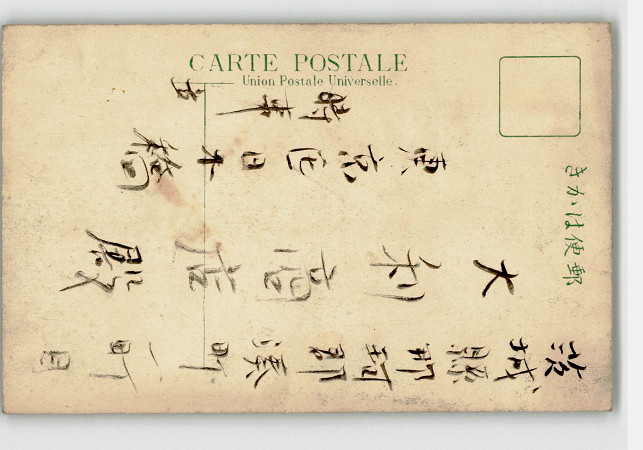 CARTE POSTALE
Union Postale Universelle.
郵便はかき
茨城縣那珂郡湊町一町目
大利商店殿
東京 日本橋